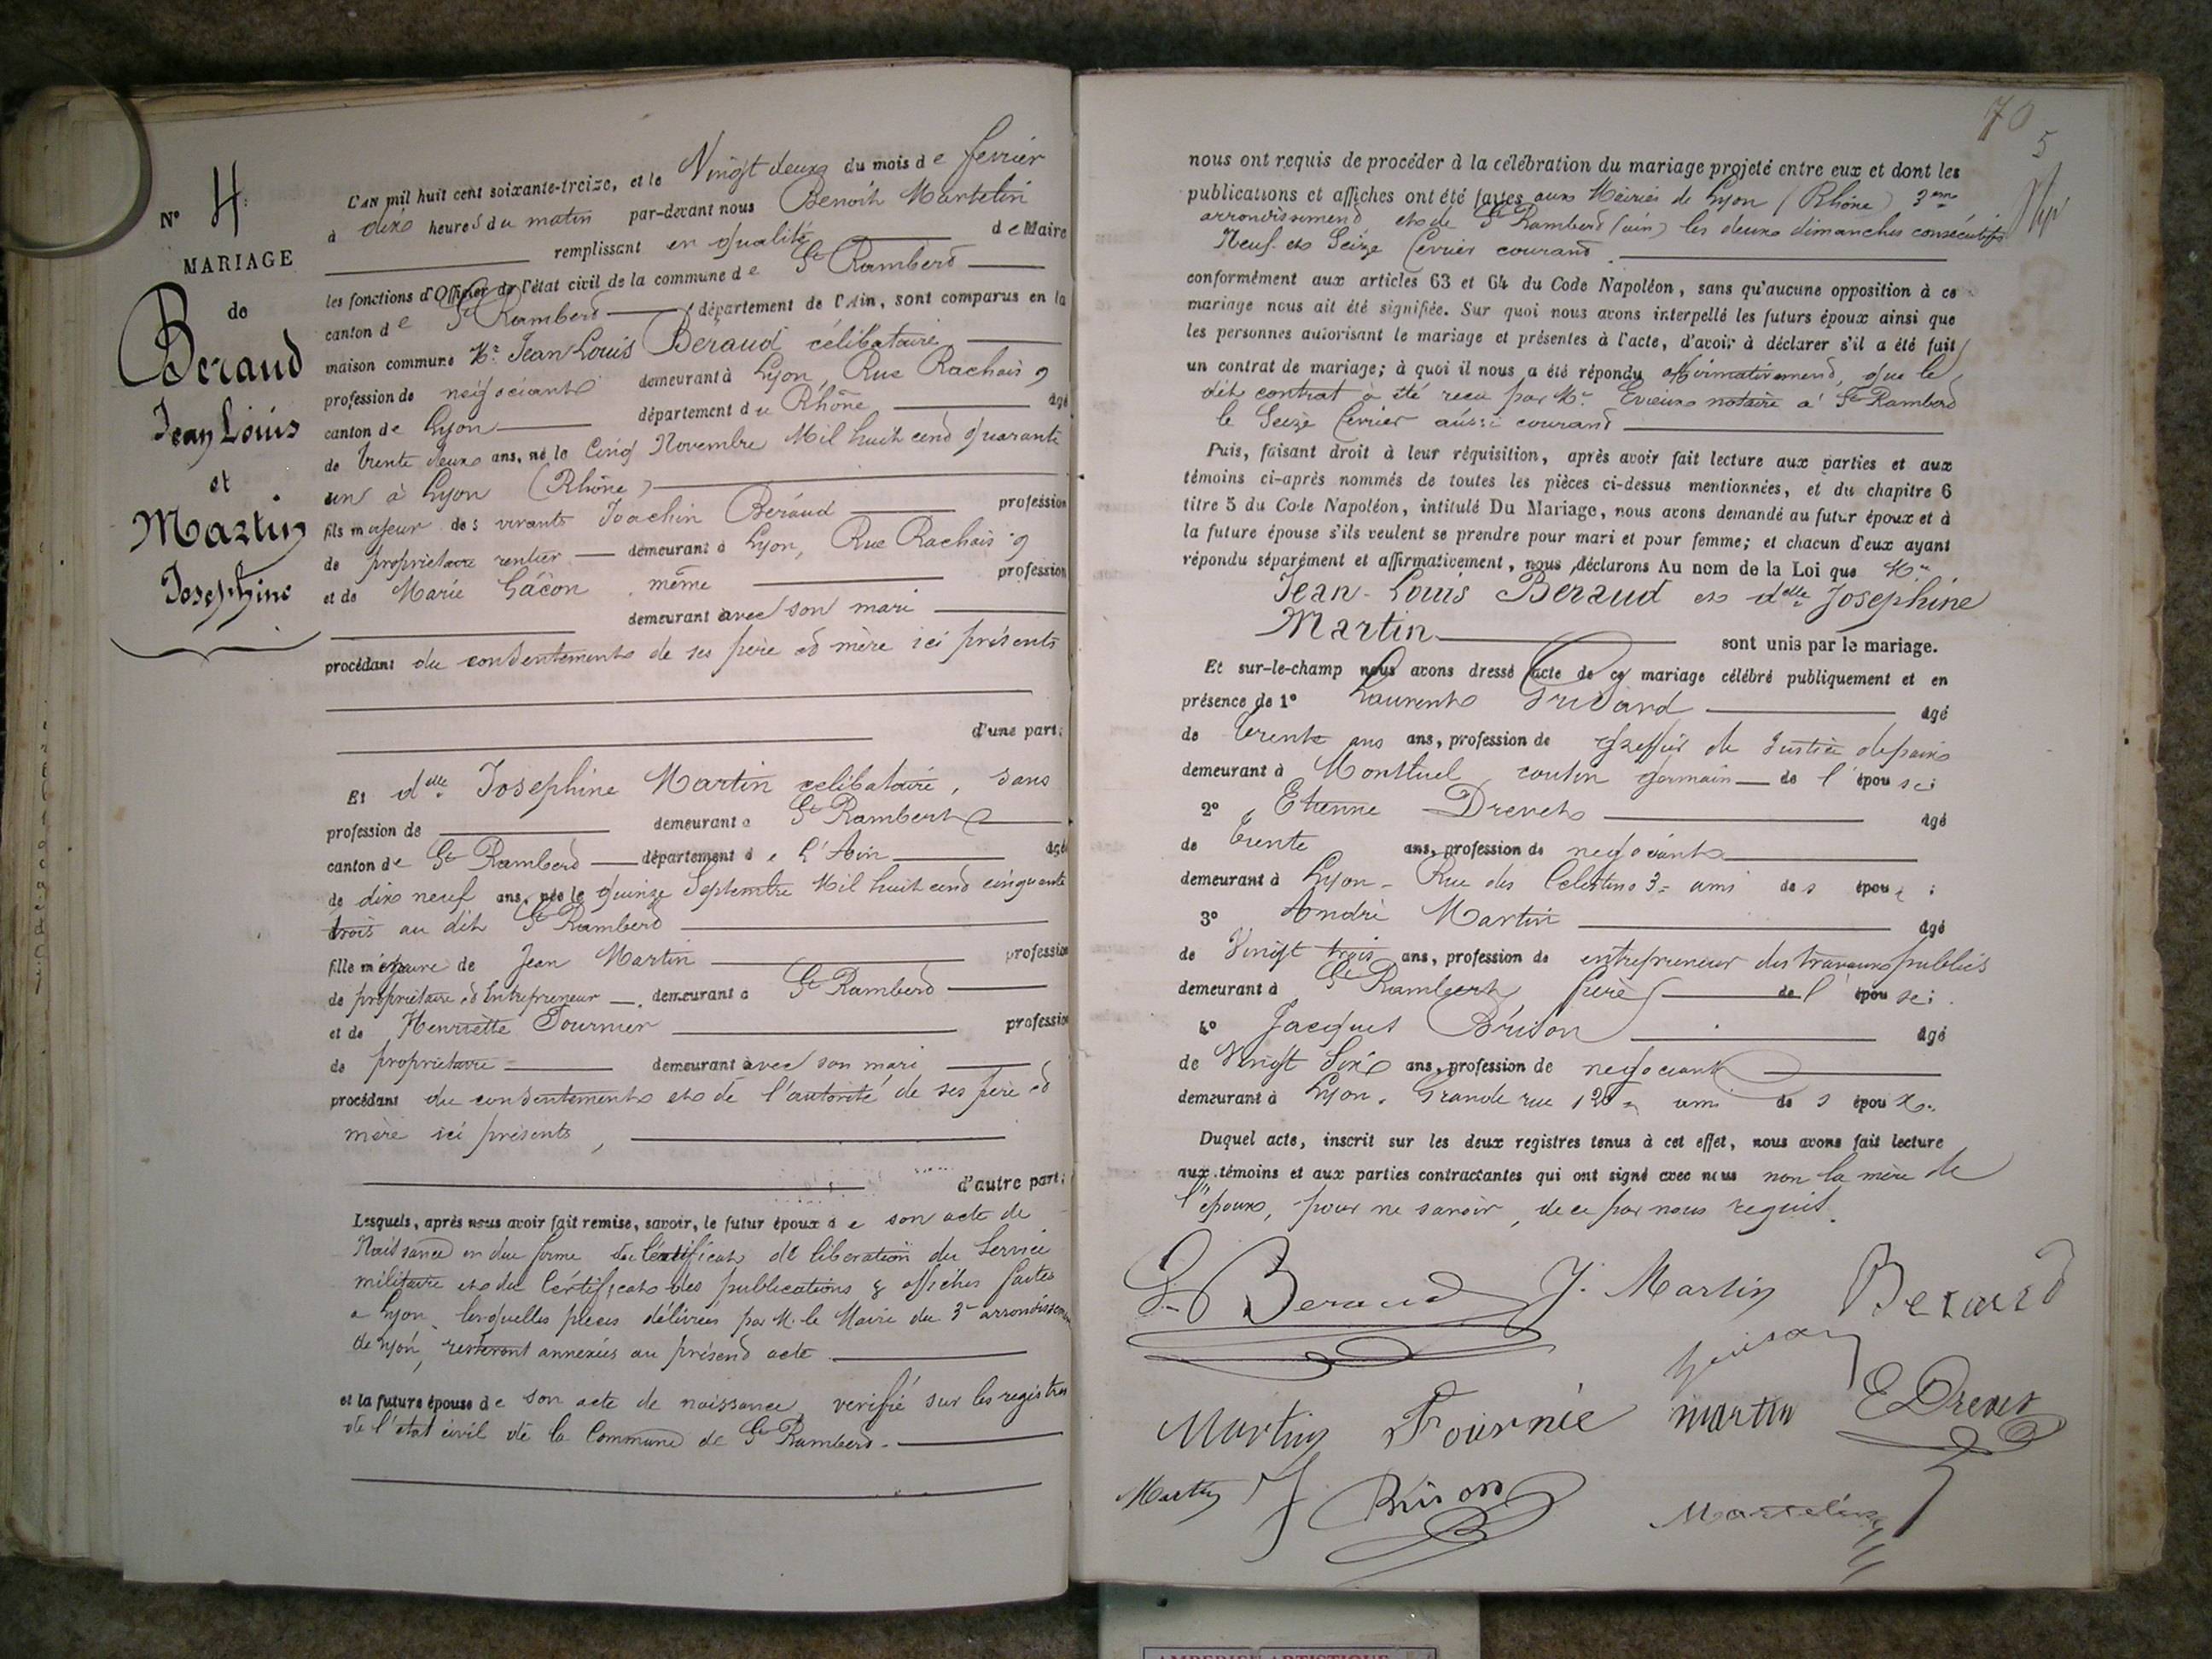 N° 4
MARIAGE
de
Beraud
Jean Louis
et
Martin
Josephine
L'AN mil huit cent soixante-treize, et le Vingt deux du mois de fevrier
à dix heures du matin par-devant nous Benoît Martelin
remplissant en qualité de Maire
les fonctions d'Officier de l'état civil de la commune de St Rambert
canton de St Rambert département de l'Ain, sont comparus en la
maison commune Mr Jean Louis Beraud célibataire
profession de négociant demeurant à Lyon, Rue Rachais 9
canton de Lyon département du Rhône âgé
de trente deux ans, né le Cinq Novembre Mil huit cent quarante
un à Lyon (Rhône)
fils majeur des vivants Joachin Beraud profession
de proprietaire rentier demeurant à Lyon, Rue Rachais 9
et de Marie Gâcon même profession
demeurant avec son mari
procédant du consentement de ses père et mère ici présents
d'une part;
Et delle Josephine Martin celibataire, sans
profession de demeurant à St Rambert
canton de St Rambert département de l'Ain âgé
de dix neuf ans, née le quinze Septembre Mil huit cent cinquante
trois au dit St Rambert
fille mineure de Jean Martin profession
de propriétaire et Entrepreneur demeurant à St Rambert
et de Henriette Fournier profession
de proprietaire demeurant avec son mari
procédant du consentement et de l'autorité de ses père et
mère ici présents,
d'autre part;
Lesquels, après nous avoir fait remise, savoir, le futur époux de son acte de
Naissance en due forme du Certificat de liberation du Service
militaire et du Certificat des publications & affiches faites
a Lyon, lesquelles pièces délivrées par M. le Maire du 3e arrondissement
de Lyon, resteront annexées au présent acte
et la future épouse de son acte de naissance verifié sur les registres
de l'état civil de la Commune de St Rambert.
70
5
nous ont requis de procéder à la célébration du mariage projeté entre eux et dont les
publications et affiches ont été faites aux Mairies de Lyon (Rhône) 3eme
arrondissement et de St Rambert (ain) les deux dimanches consécutifs
Neuf et Seize fevrier courant.
conformément aux articles 63 et 64 du Code Napoléon, sans qu'aucune opposition à ce
mariage nous ait été signifiée. Sur quoi nous avons interpellé les futurs époux ainsi que
les personnes autorisant le mariage et présentes à l'acte, d'avoir à déclarer s'il a été fait
un contrat de mariage; à quoi il nous a été répondu affirmativement, que le
dit contrat à été recu par Mr Evieux notaire à St Rambert
le Seize fevrier aussi courant
Puis, faisant droit à leur réquisition, après avoir fait lecture aux parties et aux
témoins ci-après nommés de toutes les pièces ci-dessus mentionnées, et du chapitre 6
titre 5 du Code Napoléon, intitulé Du Mariage, nous avons demandé au futur époux et à
la future épouse s'ils veulent se prendre pour mari et pour femme; et chacun d'eux ayant
répondu séparément et affirmativement, nous déclarons Au nom de la Loi que Mr
Jean-Louis Beraud et delle Josephine
Martin sont unis par le mariage.
Et sur-le-champ nous avons dressé acte de ce mariage célébré publiquement et en
présence de 1° Laurent âgé
de trente ans ans, profession de greffier de Justice de paix
demeurant à Montluel cousin germain de l'épouse;
2° Etienne Drevet âgé
de trente ans, profession de negociant
demeurant à Lyon - Rue des Celestins 3 = ami des époux;
3° André Martin âgé
de Vingt trois ans, profession de entrepreneur des travaux publics
demeurant à St Rambert, frère de l'épouse;
4° Jacques Brison âgé
de Vingt Six ans, profession de negociant
demeurant à Lyon. Grande rue 120 = ami des époux.
Duquel acte, inscrit sur les deux registres tenus à cet effet, nous avons fait lecture
aux témoins et aux parties contractantes qui ont signé avec nous non la mère de
l'époux, pour ne savoir, de ce par nous requis.
L. Beraud J. Martin Beraud
Martin Fournié martin E Drevet
Martin J Brison Martelin